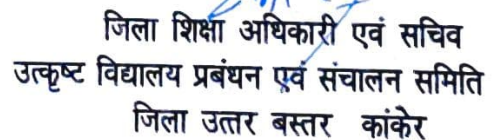 जिला शिक्षा अधिकारी एवं सचिव
उत्कृष्ट विद्यालय प्रबंधन एवं संचालन समिति
जिला उत्तर बस्तर कांकेर